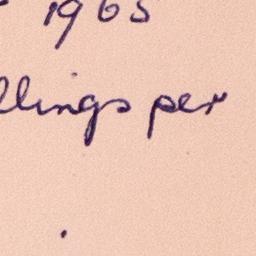 1965
llings per
.